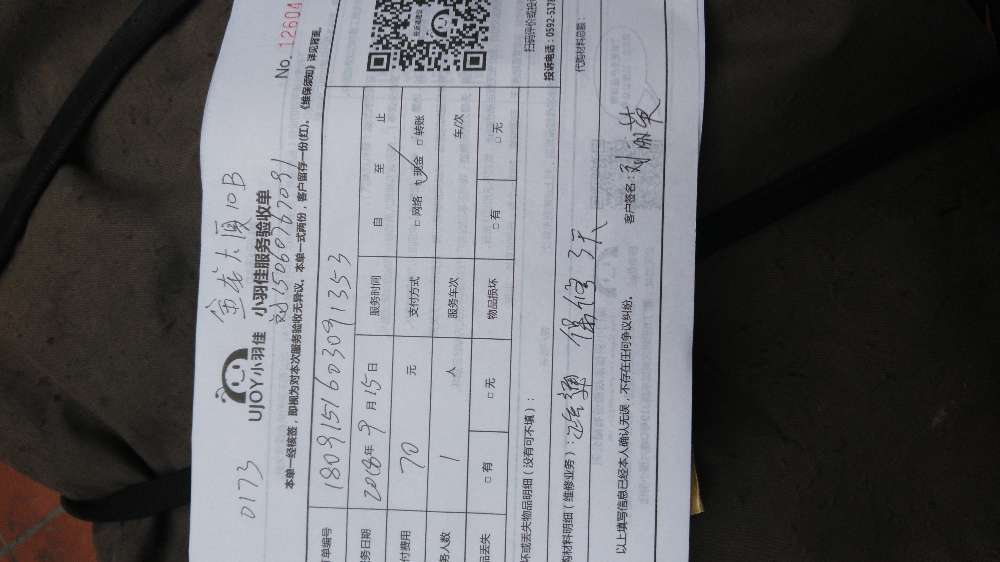 0173
金龙大厦10B
刘15060767091
No.12604
UJOY小羽佳 小羽佳服务验收单
本单一经核签，即视为对本次服务验收无异议。本单一式两份，客户留存一份(红)。《维保须知》详见背面
单编号 1809151603091353
务日期 2018年9月15日 服务时间 自 至 止
付费用 70 元 支付方式 □网络 □现金 □转账
务人数 1 人 服务车次 车/次
品丢失 □有 □无 物品损坏 □有 □无
扫码评价或投
坏或丢失物品明细（没有可不填）：
投诉电话：0592-5178
购材料明细（维修业务）： 保修3天
代购材料总额：
以上填写信息已经本人确认无误，不存在任何争议纠纷。 客户签名：刘丽英